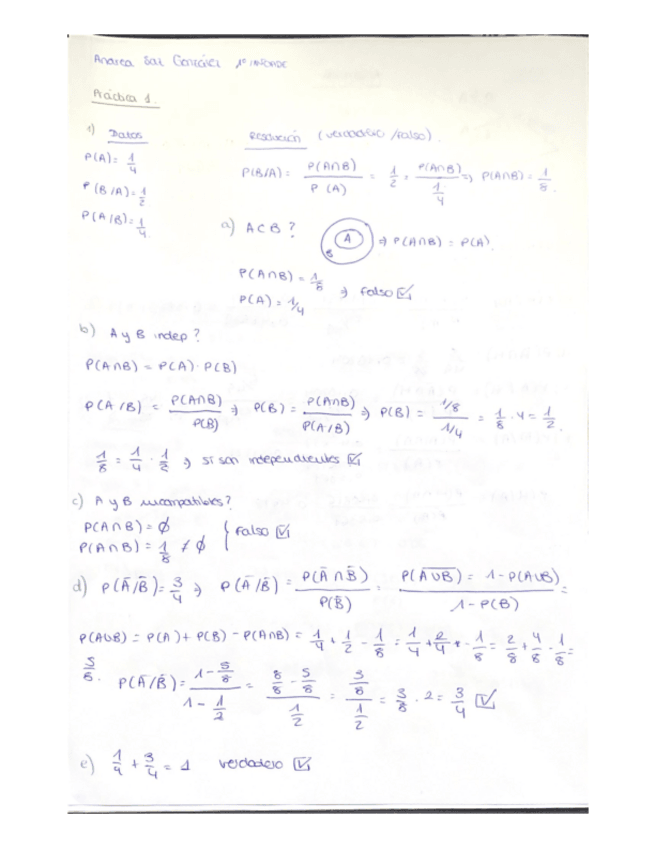 Andrea Saz González 1º INFORDE
Práctica 1.
1) Datos
P(A) = 1/4
P(B/A) = 1/2
P(A/B) = 1/4.
Resolución (verdadero/falso).
P(B/A) = P(A∩B) / P(A) = 1/2 = P(A∩B) / 1/4 ⇒ P(A∩B) = 1/8.
a) A⊂B? A B ⇒ P(A∩B) = P(A).
P(A∩B) = 1/8
P(A) = 1/4 ⇒ Falso ☑
b) A y B indep?
P(A∩B) = P(A) · P(B)
P(A/B) = P(A∩B) / P(B) ⇒ P(B) = P(A∩B) / P(A/B) ⇒ P(B) = 1/8 / 1/4 = 1/8 · 4 = 1/2.
1/8 = 1/4 · 1/2 ⇒ sí son independientes ☑
c) A y B incompatibles?
P(A∩B) = ∅
P(A∩B) = 1/8 ≠ ∅ } Falso ☑
d) P(Ā/B̄) = 3/4 ⇒ P(Ā/B̄) = P(Ā∩B̄) / P(B̄) = P(A̅U̅B̅) = 1 - P(AUB) / 1 - P(B) =
P(AUB) = P(A) + P(B) - P(A∩B) = 1/4 + 1/2 - 1/8 = 1/4 + 2/4 - 1/8 = 2/8 + 4/8 - 1/8 =
5/8. P(Ā/B̄) = 1 - 5/8 / 1 - 1/2 = 8/8 - 5/8 / 1/2 = 3/8 / 1/2 = 3/8 · 2 = 3/4 ☑
e) 1/4 + 3/4 = 1 verdadero ☑